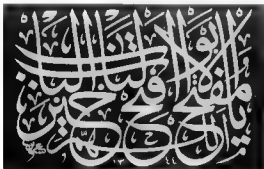 اللهم يا مفتح الابواب افتح لنا خير الباب